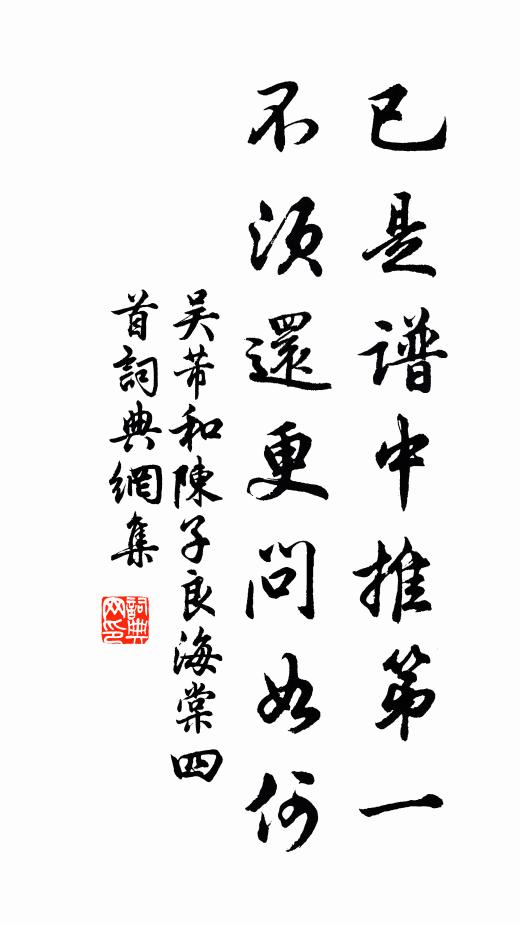 已是谱中推第一
不须還更问如何
吴芾和陳子良海棠四
首詞典網集
詞典
网印